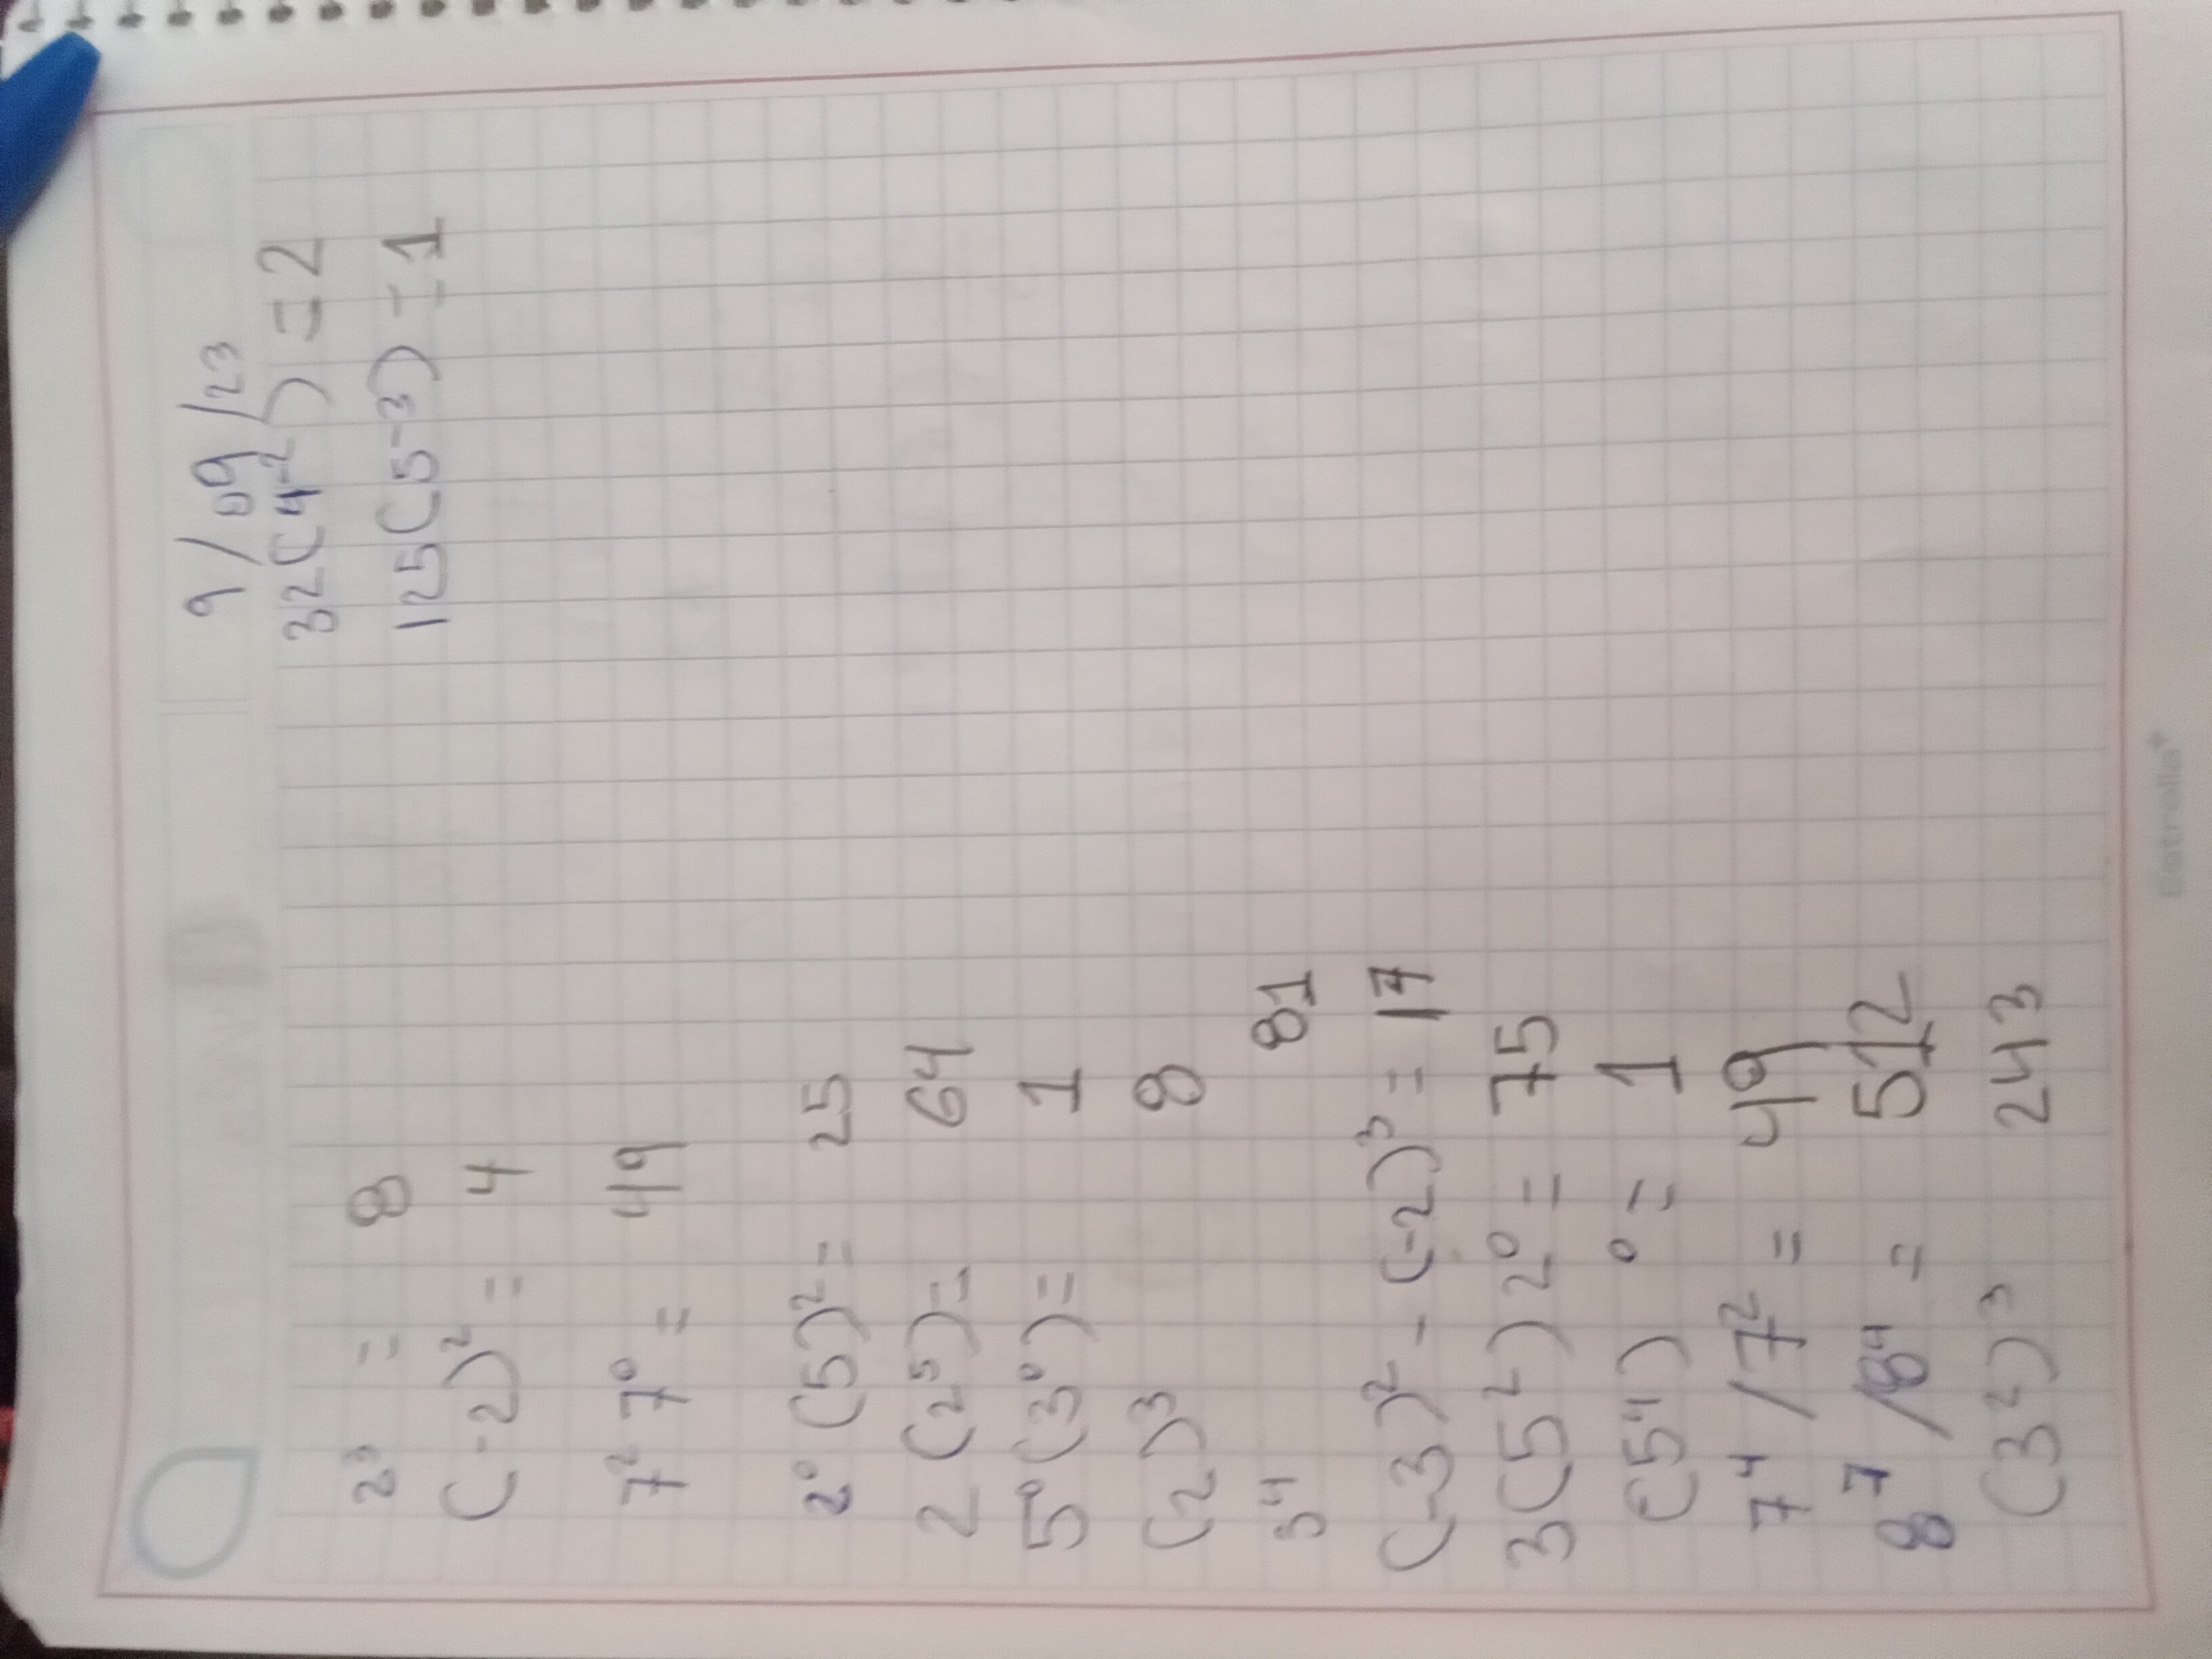 9/09/23
32(4⁻²) = 2
125(5⁻³) = 1
2³ = 8
(-2)² = 4
7² 7⁰ = 49
2⁰ (5)² = 25
2 (2⁵) = 64
5⁰ (3⁰) = 1
(2)³ 8
3⁴ 81
(-3)² - (-2)³ = 17
3(5²) 2⁰ = 75
(5⁴)⁰ = 1
7⁴ / 7² = 49
8⁷ / 8⁴ = 512
(3²)³ 243
Estrella+